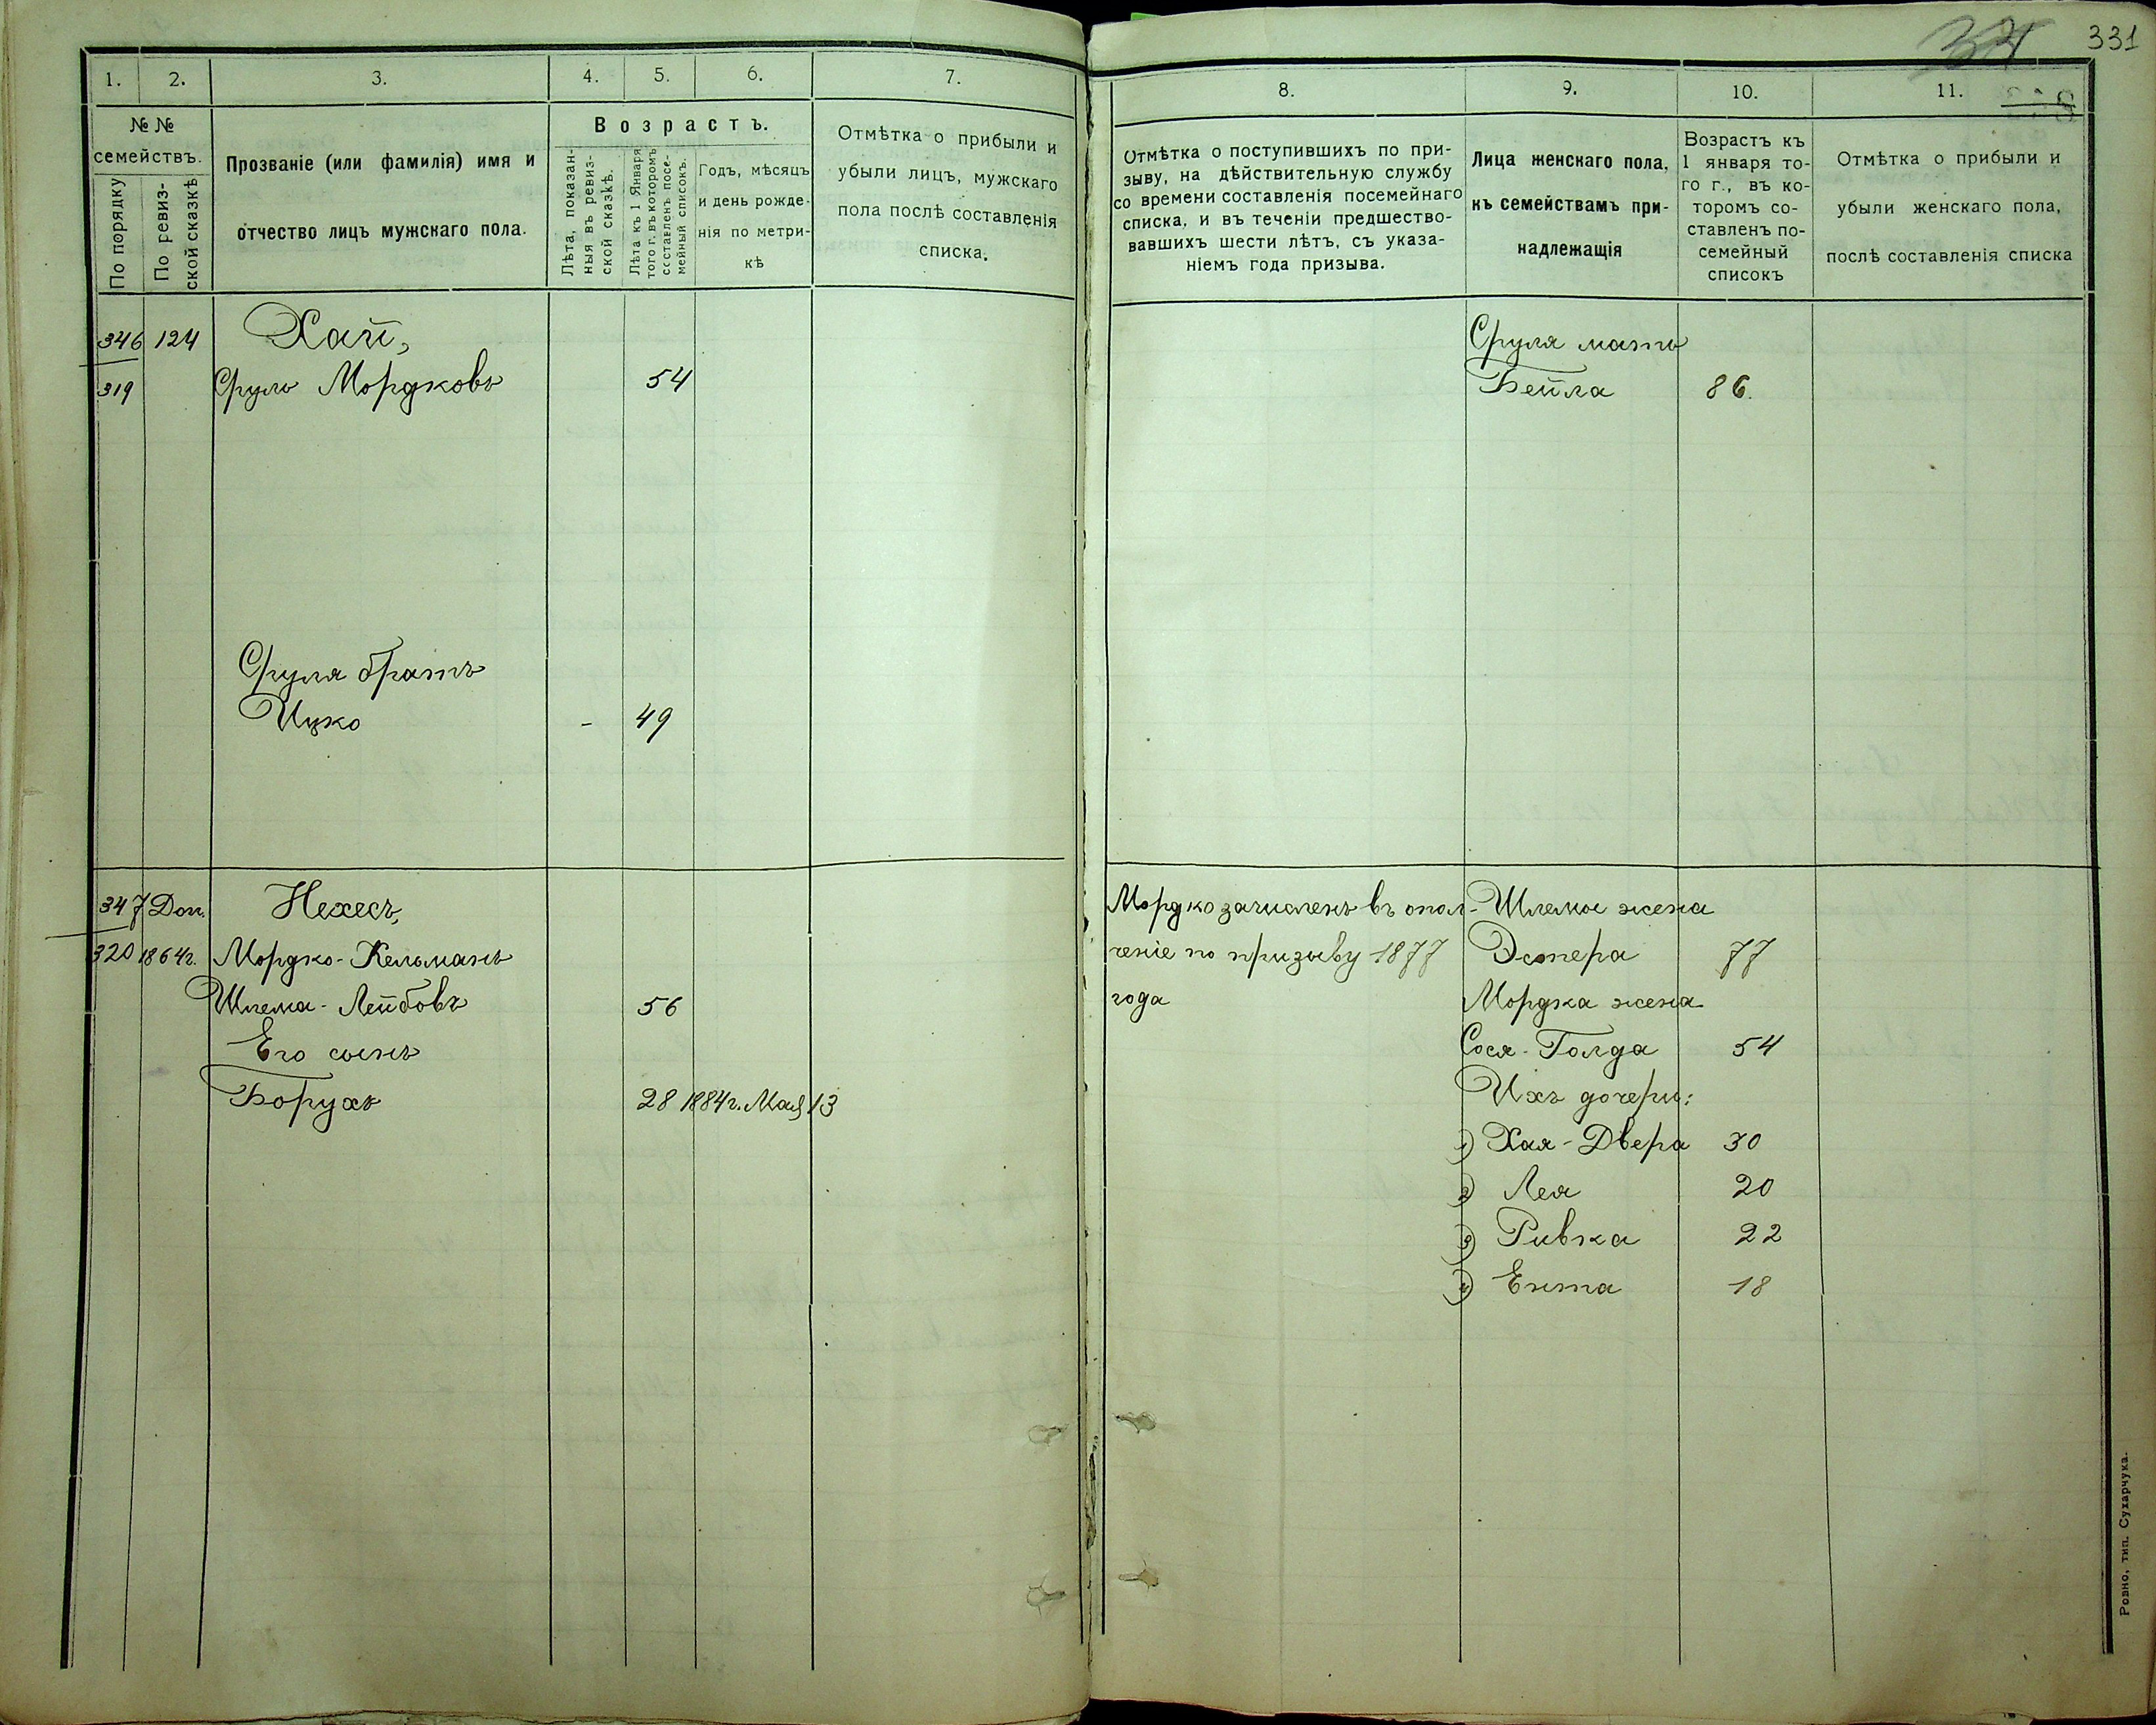 331
1.
2.
3.
4.
5.
6.
7.
№ №
семействъ.
По порядку
По ревиз-
ской сказкѣ
Прозваніе (или фамилія) имя и
отчество лицъ мужскаго пола.
Возрастъ.
Лѣта, показан-
ныя въ ревиз-
ской сказкѣ.
Лѣта къ 1 Января
того г. въ которомъ
составленъ посе-
мейный списокъ.
Годъ, мѣсяцъ
и день рожде-
нія по метри-
кѣ
Отмѣтка о прибыли и
убыли лицъ, мужскаго
пола послѣ составленія
списка.
346 124 Хайї,
319 Сруль Мордковъ 54
Сруля братъ
Ицко - 49
347 Доп. Нехесъ,
320 1864г. Мордко-Кельманъ
Шлема-Лейбовъ 56
Его сынъ
Борухъ 28 1884г. Мая 13
8.
9.
10.
11.
Отмѣтка о поступившихъ по при-
зыву, на дѣйствительную службу
со времени составленія посемейнаго
списка, и въ теченіи предшество-
вавшихъ шести лѣтъ, съ указа-
ніемъ года призыва.
Лица женскаго пола,
къ семействамъ при-
надлежащія
Возрастъ къ
1 января то-
го г., въ ко-
торомъ со-
ставленъ по-
семейный
списокъ
Отмѣтка о прибыли и
убыли женскаго пола,
послѣ составленія списка
Сруля мать
Бейла 86.
Мордко зачисленъ въ опол- Шлемы жена
ченіе по призыву 1877 Эстера 77
года Мордка жена
Сося-Голда 54
Ихъ дочери:
1) Хая-Двера 30
2) Лея 20
3) Ривка 22
4) Ента 18
Ровно, тип. Сухарчука.